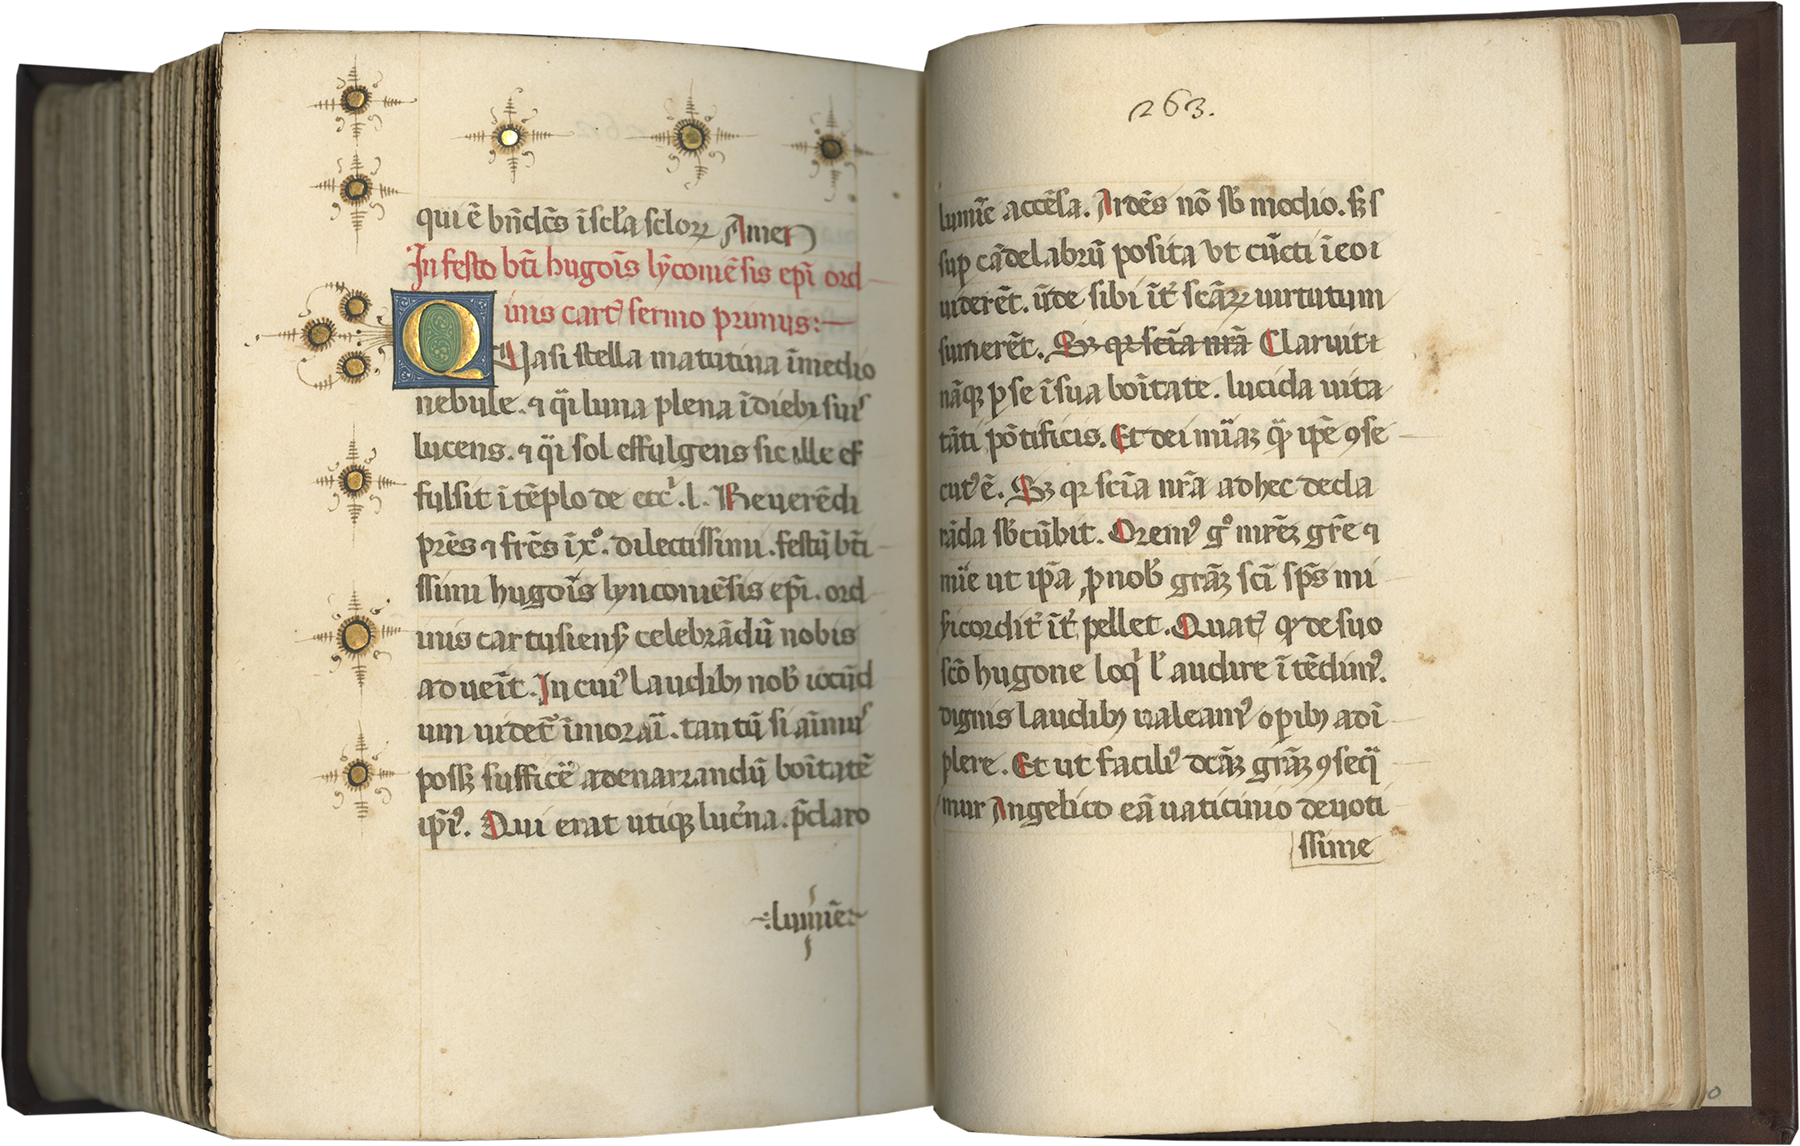 qui ē bn̄dc̄s ī scl̄a scloꝝ Amen
In festo bt̄i hugoīs lȳconiēsis ep̄i ord
inis cart᾿ sermo primus:—
QUasi stella matutina ī medio
nebule. ⁊ q̈i luna plena ī dieb᾿ suis
lucens. ⁊ q̈i sol effulgens sic ille ef
fulsit ī tēplo de ecc̄i. l. Reuerēdi
pr̄es ⁊ fr̄es ī xº. dilectissimi. festū bt̄i
ssimi hugoīs lynconiēsis ep̄i. ord
inis cartusiensꝭ celebrādū nobis
adueīt. In cui᾿ laudibꝰ nob᾿ iocūd
um uidet᾿ īmorari. tantū si aīmus
possꝫ sufficē adenarrandū boītatē
ip̄i᾿. Qui erat utiqꝫ luc̄na. p̄claro
·:lumīe:·
263.
lumīe accēsa. Ardēs nō sb᾿ modio. sꝫ s
sup cādelabrū posita vt cūcti ī eo i
uiderēt. ūde sibi īt᾿ scāꝝ uirtutum
sumerēt. Sꝫ qꝛ scīa nr̄a Claruit i
nāqꝫ ꝑ se ī sua boītate. lucida uita
tāti pōtificis. Et dei mīaꝫ ip̄e ꝯse
cut᾿ ē. Sꝫ qꝛ scīa nr̄a ad hec decla
rāda sb᾿cūbit. Orem᾿ gº mr̄eꝫ gr̄e ⁊
mīe ut ip̄a ꝓ nob᾿ grāꝫ sc̄i sp̄s mi
s̄icordit᾿ īt᾿pellet. Quat᾿ q̄ de suo
scō hugone loq̄i l᾿ audire ītēdim᾿.
dignis laudibꝰ ualeam᾿ oꝑibꝰ adī
plere. Et ut facili᾿ dcāꝫ grāꝫ ꝯseq̄
mur Angelico eā uaticinio deuoti
ssime